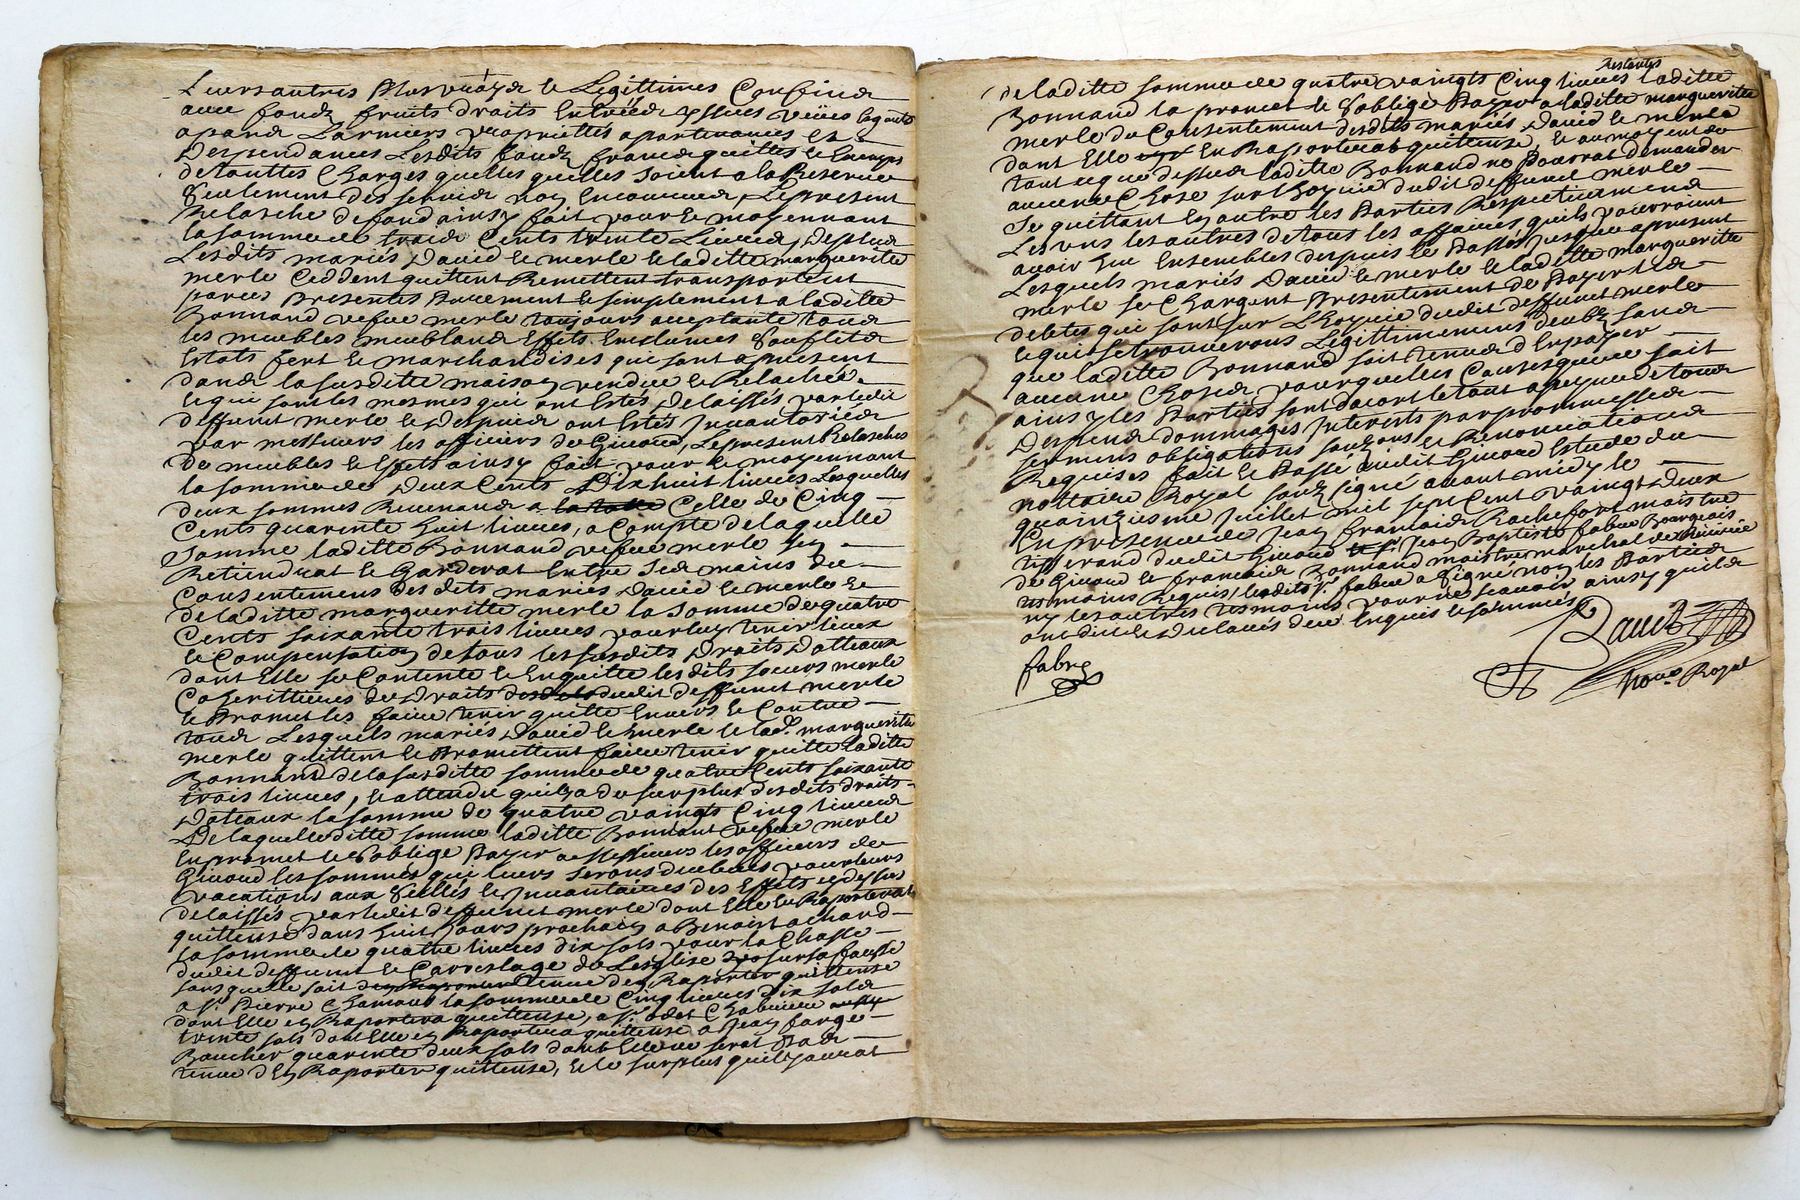 Leurs autres plus vrays et Legittimes Confins
avec fonds fruits droits Entrées yssues veues
Larmiers proprietes apartenances et
Despendances Lesdits fonds francs quittes
de touttes Charges quelles quelles soient a la Reserve
seulement des servis non Encourus, Le present
Relasche de fond ainsy fait pour et moyennant
la somme de trois Cents trente Livres, desplus
Lesdits mariés David et merle et laditte margueritte
merle Ceddent quittent Remettent transportent
par ces presentes purement et simplement a laditte
Bonnand vefve merle toujours acceptante tous
les meubles meublans Effets
Estats fert et marchandises qui sont apresent
dans la susditte maison vendue et Relachée
et qui sont les mesmes qui ont Estés delaissés par ledit
deffunct merle et despuis ont Estés Inventoriés
par messieurs les officiers de Givaud, Le present Relasches
de meubles et Effets ainsy fait pour et moyennant
la somme de deux Cents Dixhuit livres Lesquelles
deux sommes Revenans a la totte Celle de Cinq
Cents quarente huit livres, a Compte de laquelle
somme laditte Bonnand vefve merle sen
Retiendrat et Garderat Entre ses mains du
Consentement desdits mariés David et merle et
de laditte margueritte merle la somme de quatre
Cents soixante trois livres pour luy tenir lieux
et Compensation de tous les susdits Droits Dotteaux
dont Elle se Contente et Enquitte lesdits soeurs merle
Coherittieres des Droits dudit deffunct merle
et Promet les faire tenir quitte Envers et Contre
tous Lesquels mariés David et merle et lad. margueritte
merle quittent et Promettent faire tenir quitte laditte
Bonnand de la susditte somme de quatre Cents soixante
trois livres, et attendu quil y a de surplus desdits droits
Doteaux la somme de quatre vaingts Cinq livres
De laquelle ditte somme laditte Bonnand vefve merle
En promet et soblige payer a Messieurs les officiers de
Givaud les sommes qui leurs seront deubues pour leurs
vacations aux scellés et Inventaires des Effets cy dessus
delaissés par ledit deffunct merle dont Elle En Raporterat
quittense dans huit Jours prochain a Benoist achard
la somme de quatre livres dix sols pour la Chasse
dudit deffunct et Carrelage de Lesglise sur sa fausse
sans quelle soit tenue den Raporter quittense
a Sr. Pierre Chamaud la somme de Cinq livres dix sols
dont Elle en Raportera quittense, a Sr. odet Chabriere
trente sols dont Elle en Raportera quittense a Jean farge
Boucher quarente deux sols dont Elle ne serat pas
tenue dEn Raporter quittense, Et le surplus quil y aurat
restantes
de laditte somme de quatre vaingts Cinq livres laditte
Bonnand la promet et soblige payer a laditte margueritte
merle du Consentement desdits mariés David et merle
dont Elle En Raporterat quittense, et au moyen de
tout ceque dessus laditte Bonnand ne pourrat demander
aucune Chose sur Lhoyrie dudit deffunct merle
Se quittant En outre les Parties Respectivement
Les uns les autres de tous les affaires quils pourroient
avoir Eue Ensembles despuis le Passés Jusques apresent
Lesquels mariés David et merle et laditte margueritte
merle se Chargent presentement de Payer les
debtes qui sont sur Lhoyrie dudit deffunct merle
et qui se trouverons Legittimement deubs sans
que laditte Bonnand soit tenue dEn payer
aucune Chose pour quelles Causes que ce soit
ainsy les Parties sont dacort le tout a peyne de tous
Despens dommages Interests par promesses
sermens obligations soumissions et Renonciations
Requises fait et Passé audit Givaud Estude du
nottaire Royal soubs signé avant midy le
quainziesme Juillet mil sept Cent vaingt deux
En presence de Jean francois Rochefort maistre
tisserand dudit Givaud et Sr. Jean Baptiste fabre Bourgeois
de Givaud et francois Bonnand maistre marchal de
tesmoins Requis, ledit Sr. fabre a signé non les Parties
ny les autres tesmoins pour ne scavoir ainsy quils
ont dit et declarés deue Enquis et sommés
fabre
David
No.re Royal